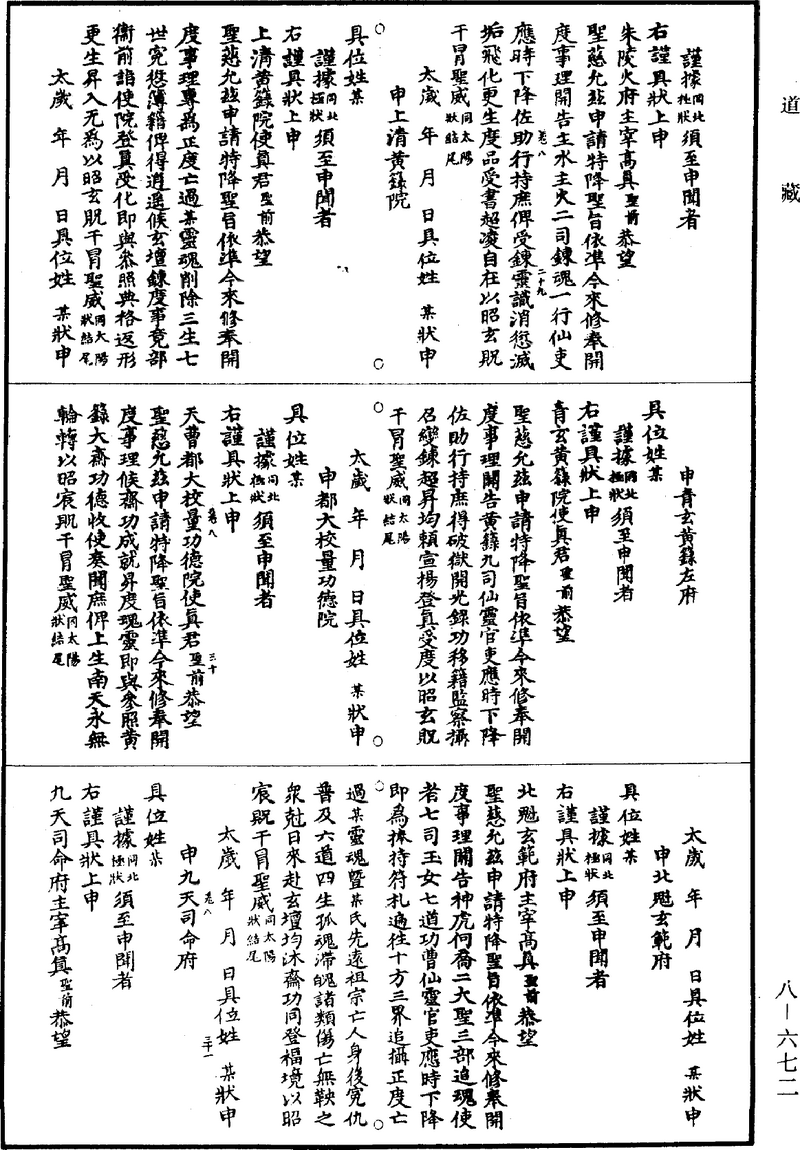 道藏
謹據同北極狀須至申聞者
右謹具狀上申
朱陵火府主宰高真聖前恭望
聖慈允茲申請特降聖旨依準今來修奉開
度事理開告主水主火二司鍊魂一行仙吏
卷八 二十九
應時下降佐助行持庶俾受鍊靈識消愆滅
垢飛化更生度品受書超凌自在以昭玄貺
干冒聖威同太陽狀結尾
太歲 年 月 日具位姓 某狀申
申上清黃籙院
具位姓某
謹據同北極狀須至申聞者
右謹具狀上申
上清黃籙院使真君聖前恭望
聖慈允茲申請特降聖旨依準今來修奉開
度事理專為正度亡過某靈魂削除三生七
世冤愆簿籍俾得逍遙候玄壇鍊度事竟部
衛前詣使院登真受化即與恭照典格返形
更生昇入无為以昭玄貺干冒聖威同太陽狀結尾
太歲 年 月 日具位姓 某狀申
申青玄黃籙左府
具位姓某
謹據同北極狀須至申聞者
右謹具狀上申
青玄黃籙院使真君聖前恭望
聖慈允茲申請特降聖旨依準今來修奉開
度事理開告黃籙九司仙靈官吏應時下降
佐助行持庶得破獄開光錄功移籍監察攝
召變鍊超昇均賴宣揚登真受度以昭玄貺
干冒聖威同太陽狀結尾
太歲 年 月 日具位姓 某狀申
申都大校量功德院
具位姓某
謹據同北極狀須至申聞者
右謹具狀上申
卷八 三十
天曹都大校量功德院使真君聖前恭望
聖慈允茲申請特降聖旨依準今來修奉開
度事理候齋功成就昇度魂靈即與參照黃
籙大齋功德收使奏聞庶俾上生南天永無
輪轉以昭宸貺干冒聖威同太陽狀結尾
太歲 年 月 日具位姓 某狀申
申北魁玄範府
具位姓某
謹據同北極狀須至申聞者
右謹具狀上申
北魁玄範府主宰高真聖前恭望
聖慈允茲申請特降聖旨依準今來修奉開
度事理開告神虎何喬二大聖三部追魂使
者七司玉女七道功曹仙靈官吏應時下降
即為捧持符札遍往十方三界追攝正度亡
過某靈魂暨某氏先遠祖宗亡人身後冤仇
普及六道四生孤魂滯魄諸類傷亡無鞅之
眾剋日來赴玄壇均沐齋功同登福境以昭
宸貺干冒聖威同太陽狀結尾
太歲 年 月 日具位姓 某狀申
卷八 三十一
申九天司命府
具位姓某
謹據同北極狀須至申聞者
右謹具狀上申
九天司命府主宰高真聖前恭望
八－六七二